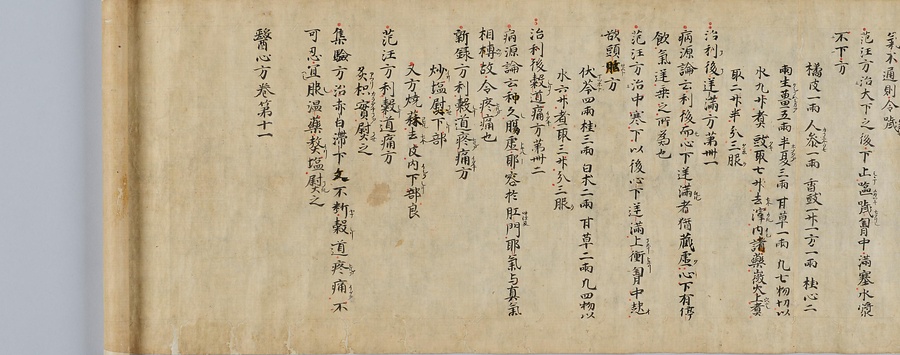 氣不通則令噦
范汪方治大下之後下止噦胷中滿塞水漿
不下方
橘皮一兩 人参一兩 香豉二升一方一兩 桂心二
兩生薑五兩半夏三兩 甘草一兩 凡七物切以
水九升煮豉取七升去滓內諸藥微火上煮
取二升半分三服
治利後逆滿方第卌一
病源論云利後而心下逆滿者猶藏虛心下有停
飲氣逆乘之所為也
范汪方治中寒下以後心下逆滿上衝胷中起
欲頭眩方
伏苓四兩桂三兩白朮二兩 甘草二兩 凡四物以
水六升煮取三升分三服
治利後穀道痛方第卌二
病源論云利久腸虛耶客於肛門耶氣与真氣
相搏故令疼痛也
新錄方利穀道疼痛方
炒塩熨下部
又方燒蒜去皮內下部良
范汪方利穀道痛方
炙枳實熨之
集驗方治赤白滯下 不断穀道疼痛不
可忍宜服温藥熬塩熨之
醫心方卷第十一